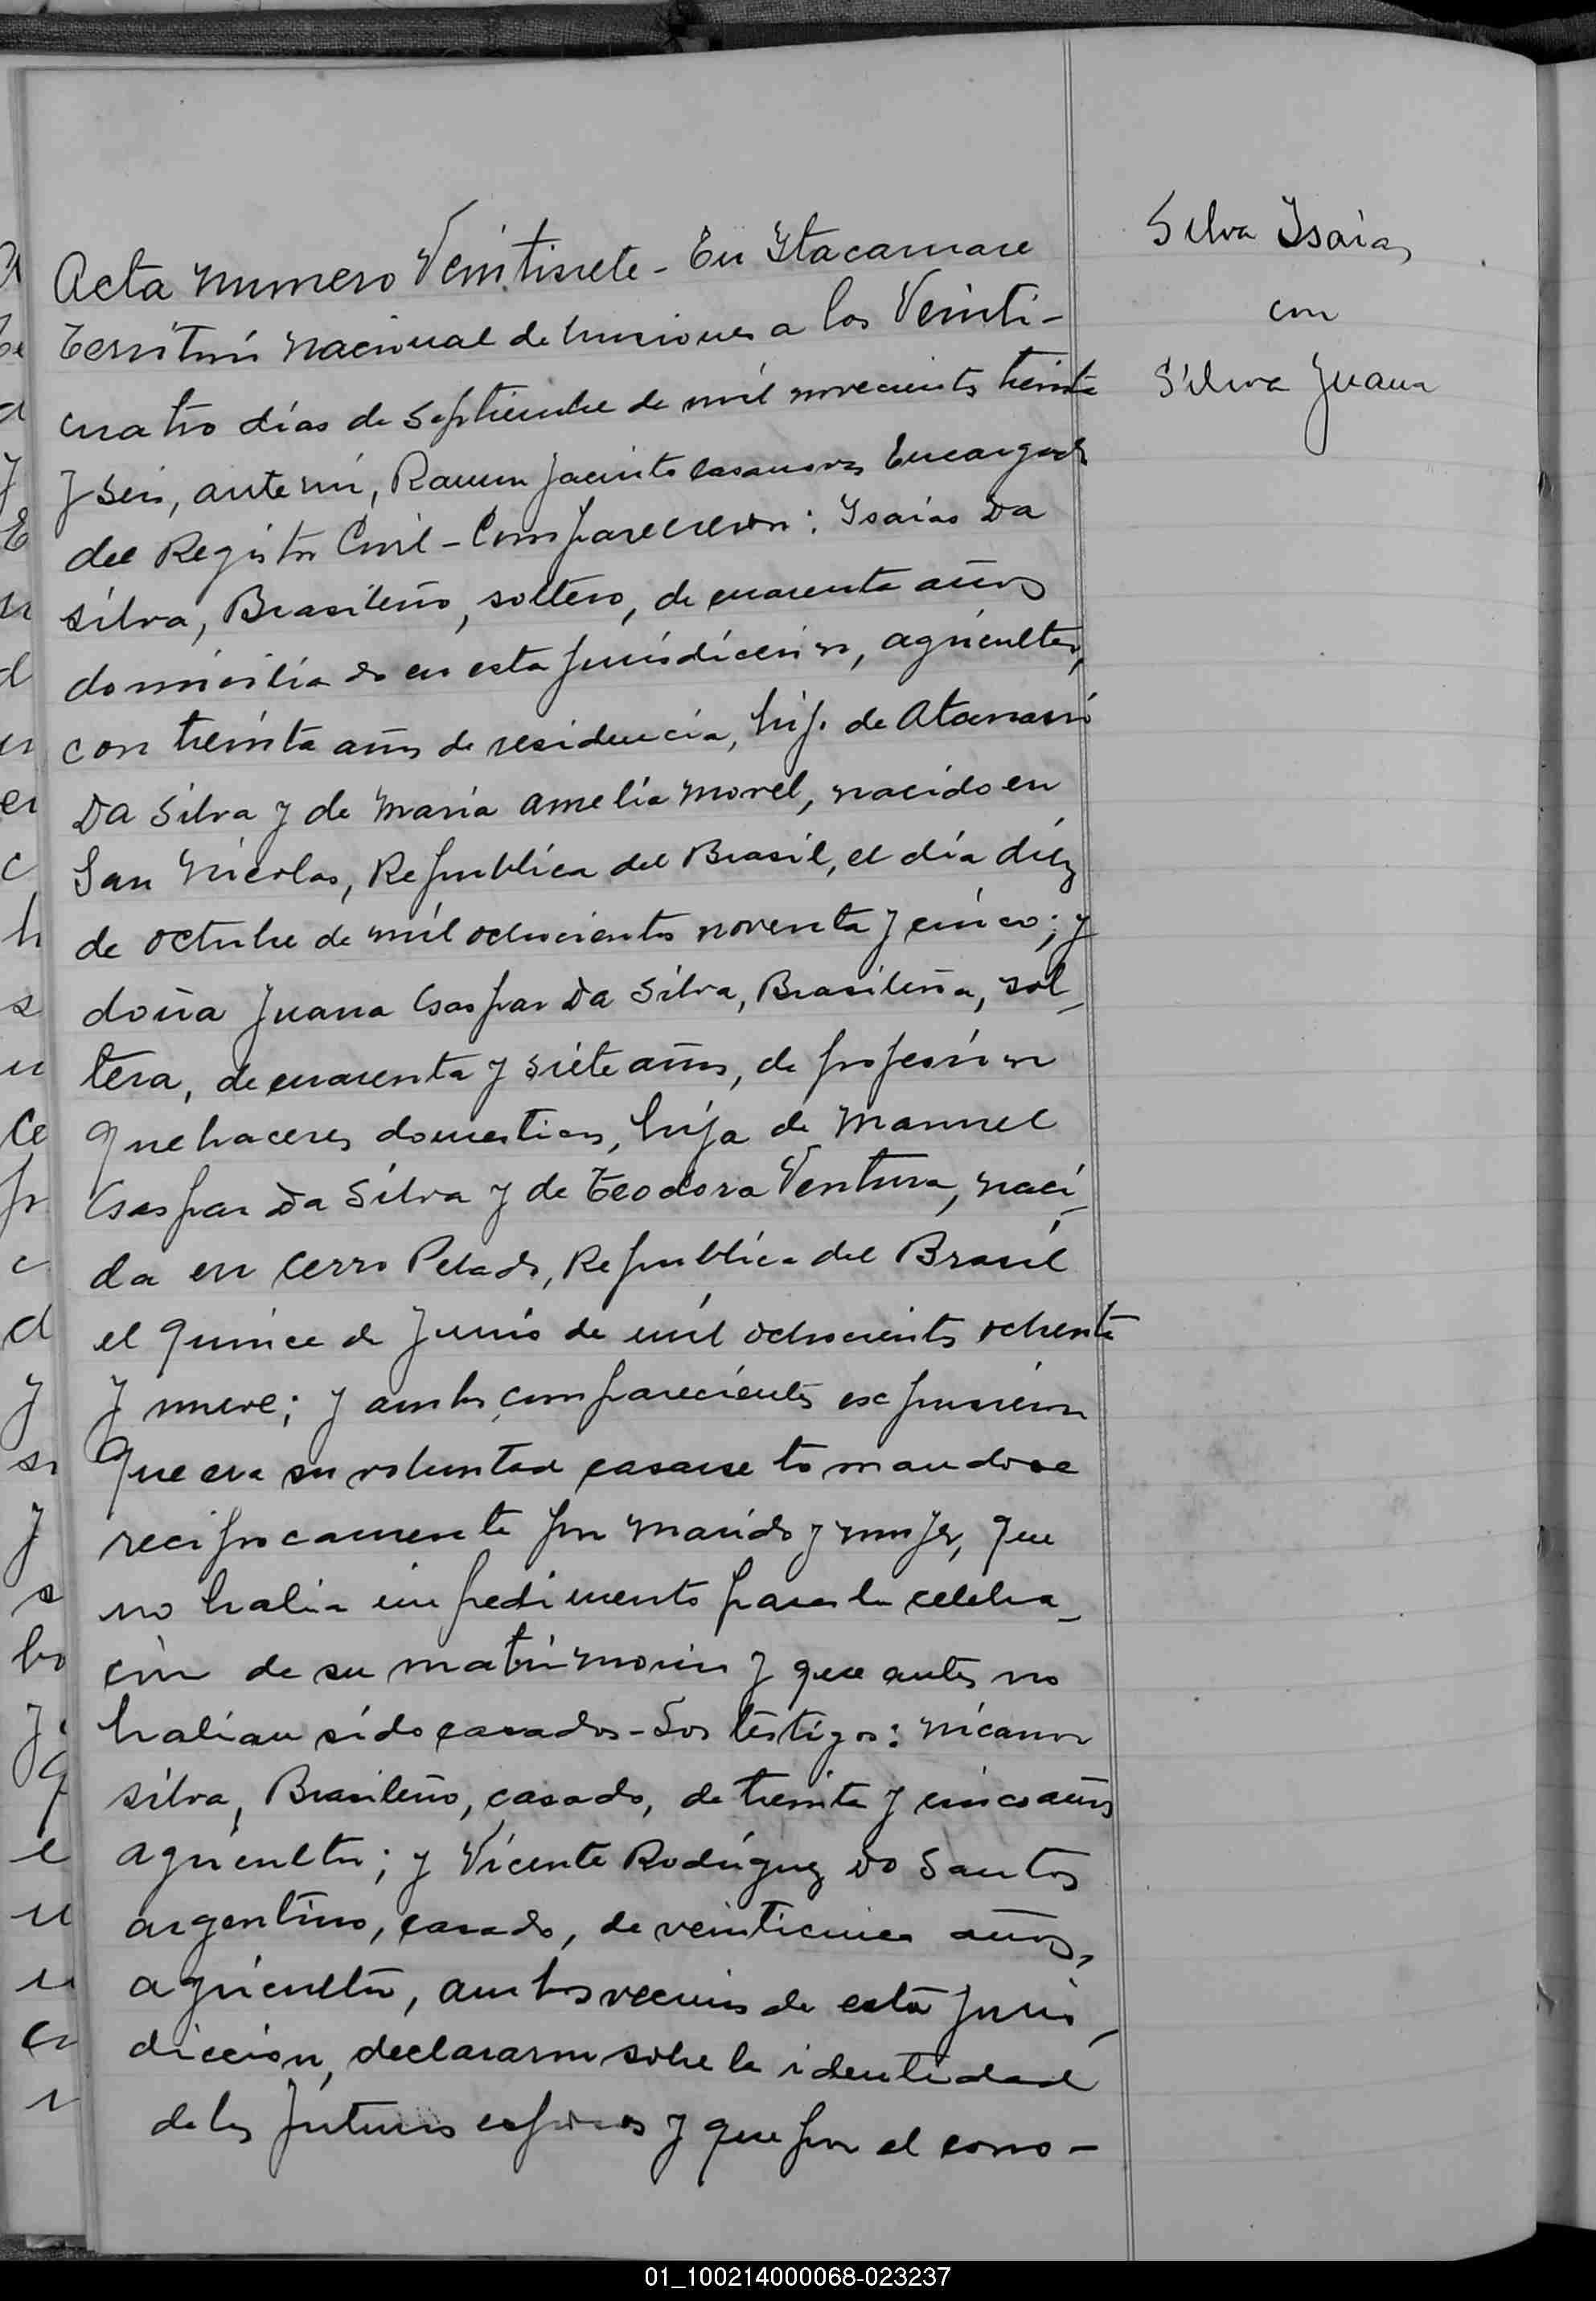 Acta numero Veintisiete - En Itacaruare
Territorio Nacional de Misiones a los Veinti-
cuatro días de Septiembre de mil novecientos treinta
y seis, ante mi, Ramon Jacinto Casanova Encargado
del Registro Civil - Comparecieron: Isaias Da
Silva, Brasileño, soltero, de cuarenta años
domiciliado en esta jurisdiccion, agricultor,
con treinta años de residencia, hijo de Atanasio
Da Silva y de Maria Amelia Morel, nacido en
San Nicolas, Republica del Brasil, el día diéz
de octubre de mil ochocientos noventa y cinco; y
doña Juana Gaspar Da Silva, Brasileña, sol-
tera, de cuarenta y siete años, de profesion
quehaceres domesticos, hija de Manuel
Gaspar Da Silva y de Teodora Ventura, naci-
da en Cerro Pelado, Republica del Brasil
el quince de Junio de mil ochocientos ochenta
y nueve; y ambos comparecientes expusieron
que era su voluntad casarse tomandose
reciprocamente por marido y mujer, que
no habia impedimento para la celebra-
cion de su matrimonio y que antes no
habian sido casados - Los testigos: Nicanor
Silva, Brasileño, casado, de treinta y cinco años
agricultor; y Vicente Rodriguez Do Santos
argentino, casado, de veinticinco años,
agricultor, ambos vecinos de esta juris-
diccion, declararon sobre la identidad
de los futuros esposos y que por el cono-
Silva Isaias
con
Silva Juana
01_100214000068-023237